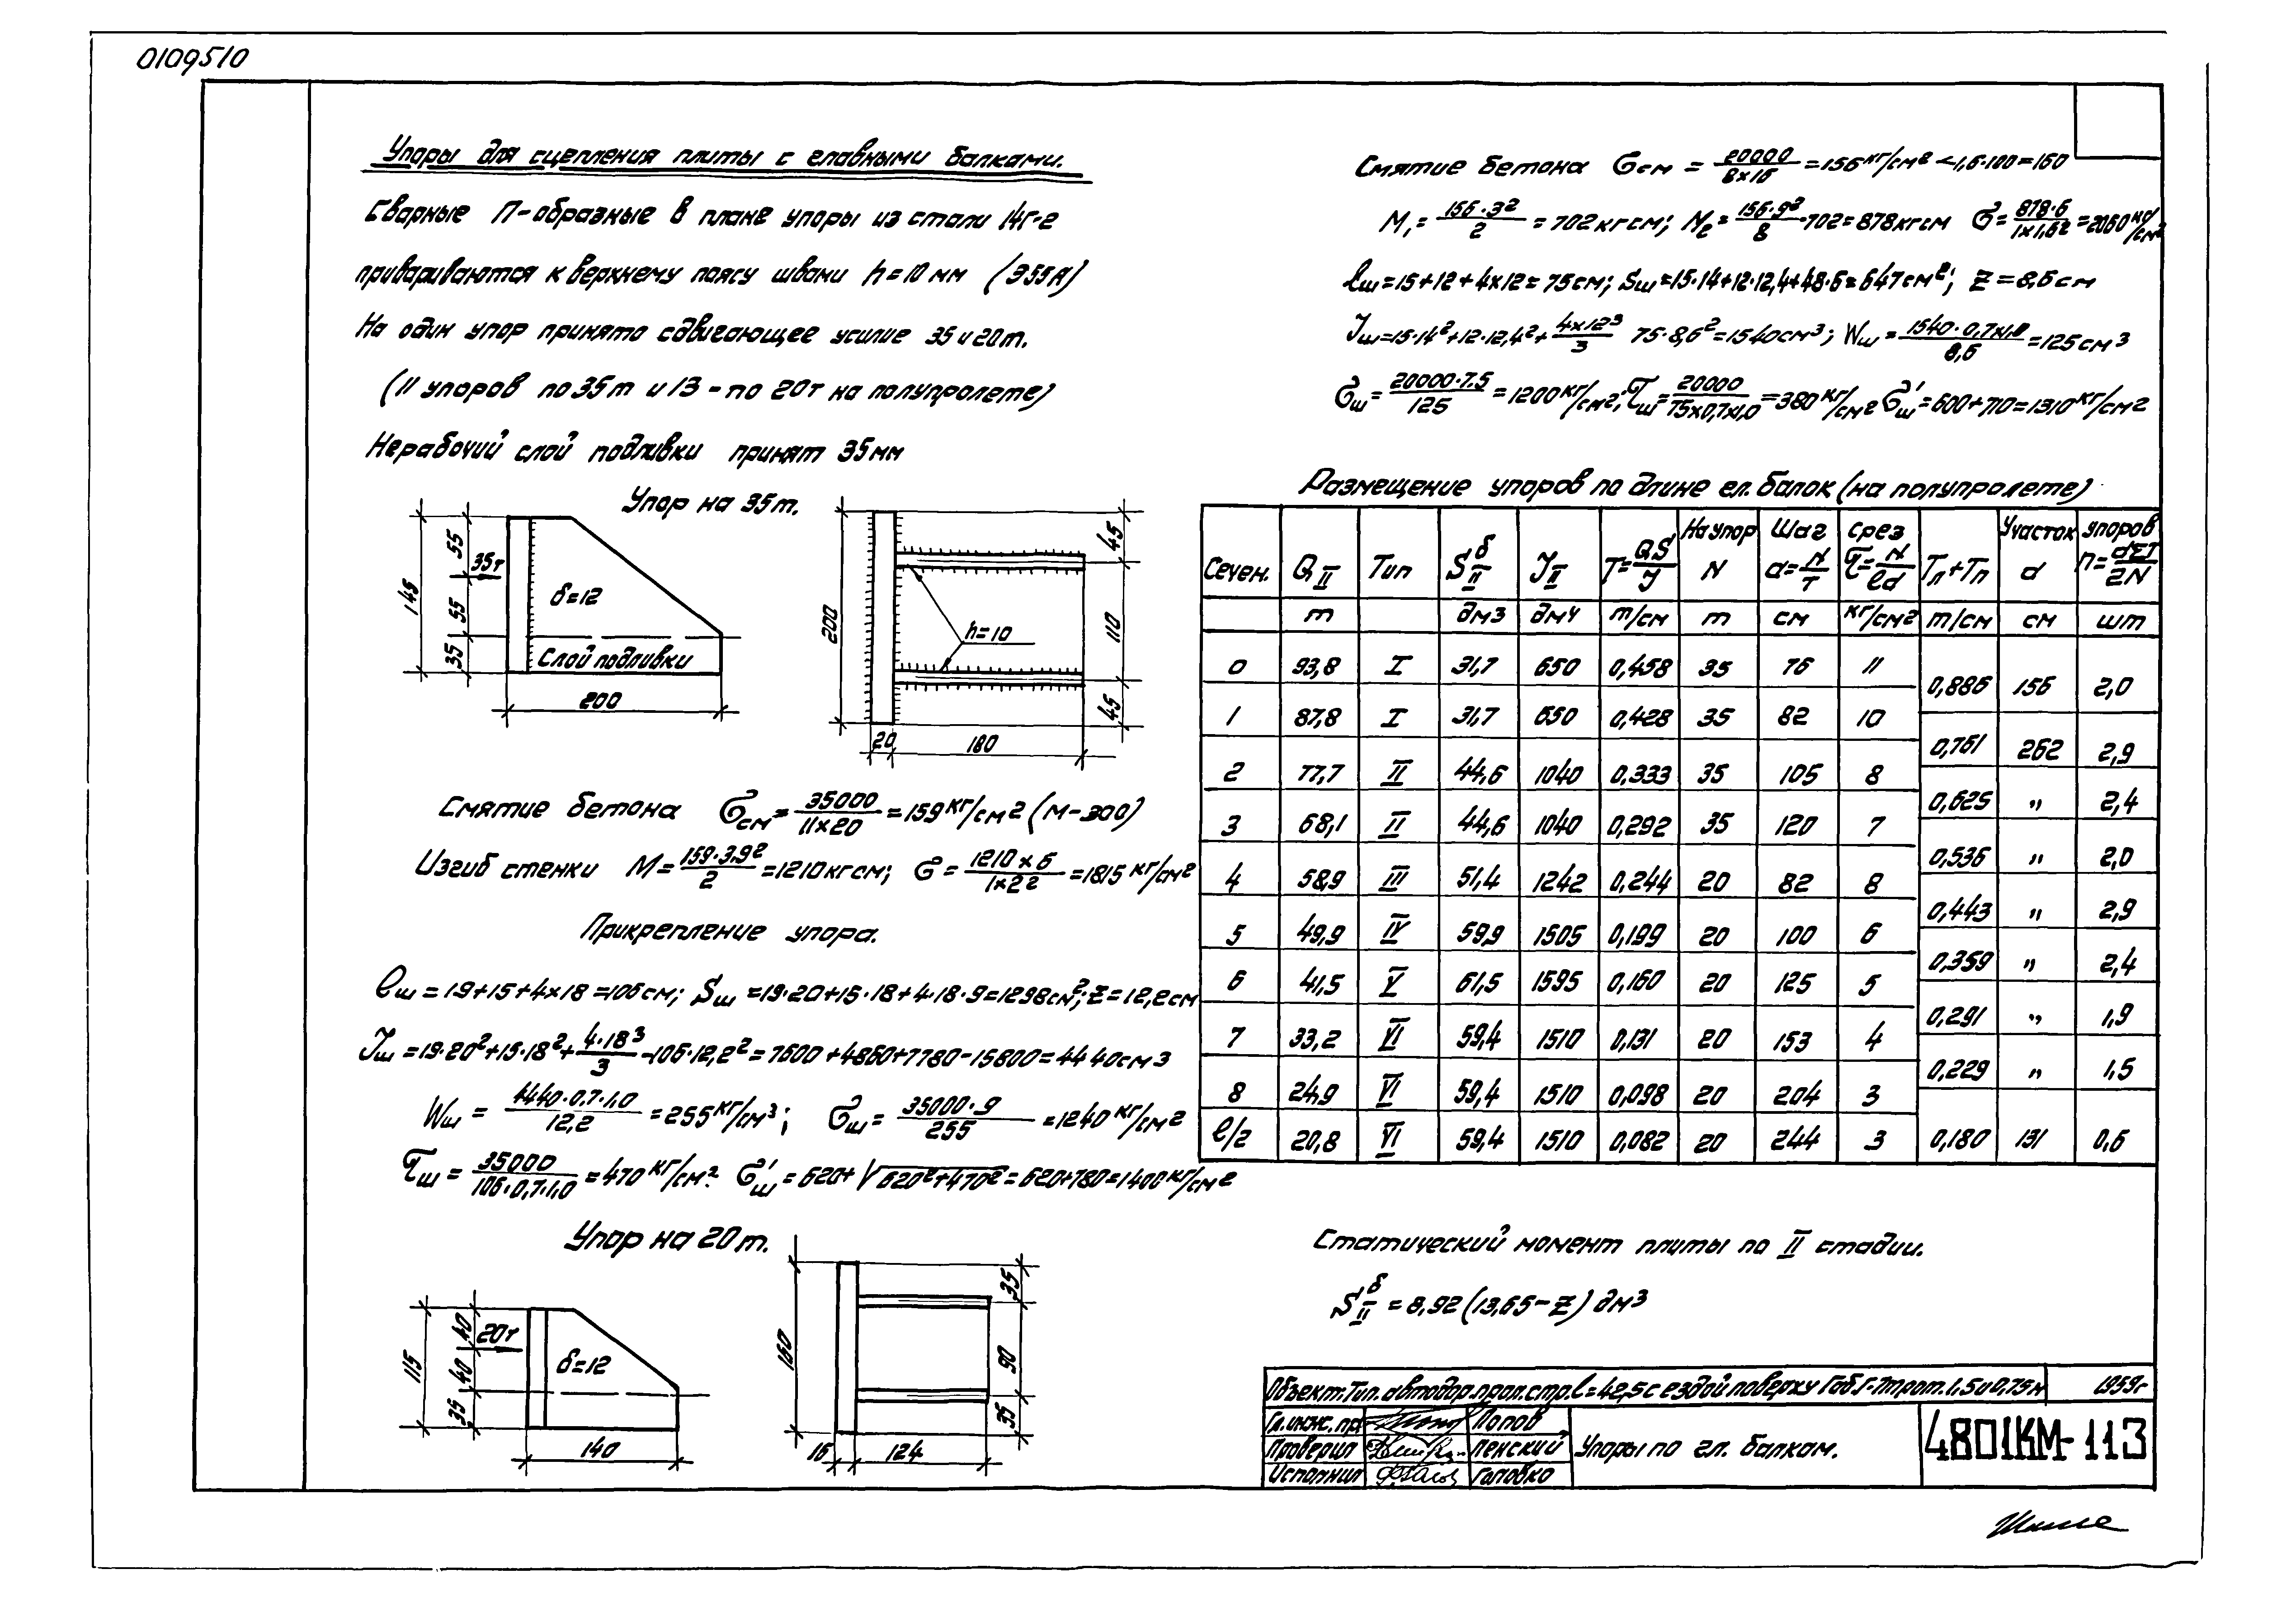 0109510
Упоры для сцепления плиты с главными балками.
Сварные П-образные в плане упоры из стали 14Г-2
привариваются к верхнему поясу швами h=10 мм (Э55А)
На один упор принято сдвигающее усилие 35 и 20т.
(11 упоров по 35т и 13 - по 20т на полупролете)
Нерабочий слой подливки принят 35мм
Упор на 35т.
145
55
55
35
35т
δ=12
Слой подливки
200
200
h=10
45
110
45
20
180
Смятие бетона σсм = 35000/11x20 = 159 кг/см2 (М-300)
Изгиб стенки M = 159·3,9²/2 = 1210 кгсм; σ = 1210x6/1x2² = 1815 кг/см2
Прикрепление упора.
lш = 19+15+4x18 = 106см; Sш = 19·20+15·18+4·18·9 = 1298см²; Z = 12,2см
Jш = 19·20²+15·18²+4·18³/3 -106·12,2² = 7600+4860+7780-15800 = 4440см3
Wш = 4440·0,7·1,0/12,2 = 255кг/см³; σш = 35000·9/255 = 1240 кг/см2
τш = 35000/106·0,7·1,0 = 470 кг/см². σ'ш = 620+√620²+470² = 620+780=1400 кг/см2
Упор на 20т.
115
40
40
35
20т
δ=12
140
160
35
90
35
16
124
Смятие бетона σсм = 20000/8x16 = 156кг/см2 ~1,6·100=160
M₁ = 156·3²/2 = 702кгсм; M₂ = 156·9²/8 -702=878кгсм σ = 878·6/1x1,6² = 2060 кг/см2
lш=15+12+4x12=75см; Sш=15·14+12·12,4+48·6=647см²; Z=8,6см
Jш=15·14²+12·12,4²+4x12³/3 75·8,6²=1540см³; Wш = 1540·0,7x1,0/8,6 = 125см3
σш = 20000·7,5/125 = 1200кг/см2; τш = 20000/75x0,7x1,0 = 380кг/см2 σ'ш=600+710=1310кг/см2
Размещение упоров по длине гл. балок (на полупролете)
Сечен. | QII | Тип | SбII | JII | T=QS/J | На упор N | Шаг a=N/T | срез τ=N/ld | Тл+Тп | Участок d | упоров n=dΣT/2N
т | дм3 | дм4 | т/см | т | см | кг/см2 | т/см | см | шт
0 | 93,8 | I | 31,7 | 650 | 0,458 | 35 | 76 | 11
0,886 | 156 | 2,0
1 | 87,8 | I | 31,7 | 650 | 0,428 | 35 | 82 | 10
0,761 | 262 | 2,9
2 | 77,7 | II | 44,6 | 1040 | 0,333 | 35 | 105 | 8
0,625 | " | 2,4
3 | 68,1 | II | 44,6 | 1040 | 0,292 | 35 | 120 | 7
0,536 | " | 2,0
4 | 58,9 | III | 51,4 | 1242 | 0,244 | 20 | 82 | 8
0,443 | " | 2,9
5 | 49,9 | IV | 59,9 | 1505 | 0,199 | 20 | 100 | 6
0,359 | " | 2,4
6 | 41,5 | V | 61,5 | 1595 | 0,160 | 20 | 125 | 5
0,291 | " | 1,9
7 | 33,2 | VI | 59,4 | 1510 | 0,131 | 20 | 153 | 4
0,229 | " | 1,5
8 | 24,9 | VI | 59,4 | 1510 | 0,098 | 20 | 204 | 3
l/2 | 20,8 | VI | 59,4 | 1510 | 0,082 | 20 | 244 | 3 | 0,180 | 131 | 0,6
Статический момент плиты по II стадии.
SбII = 8,92 (13,65-Z) дм3
Объект: Тип. автодор. прол. стр. l=42,5 с ездой поверху Габ. Г-7 трот. 1,5 и 0,75м
1959г
Гл. инж. пр. Попов
Проверил Пенский
Исполнил Головко
Упоры по гл. балкам.
4801КМ-113